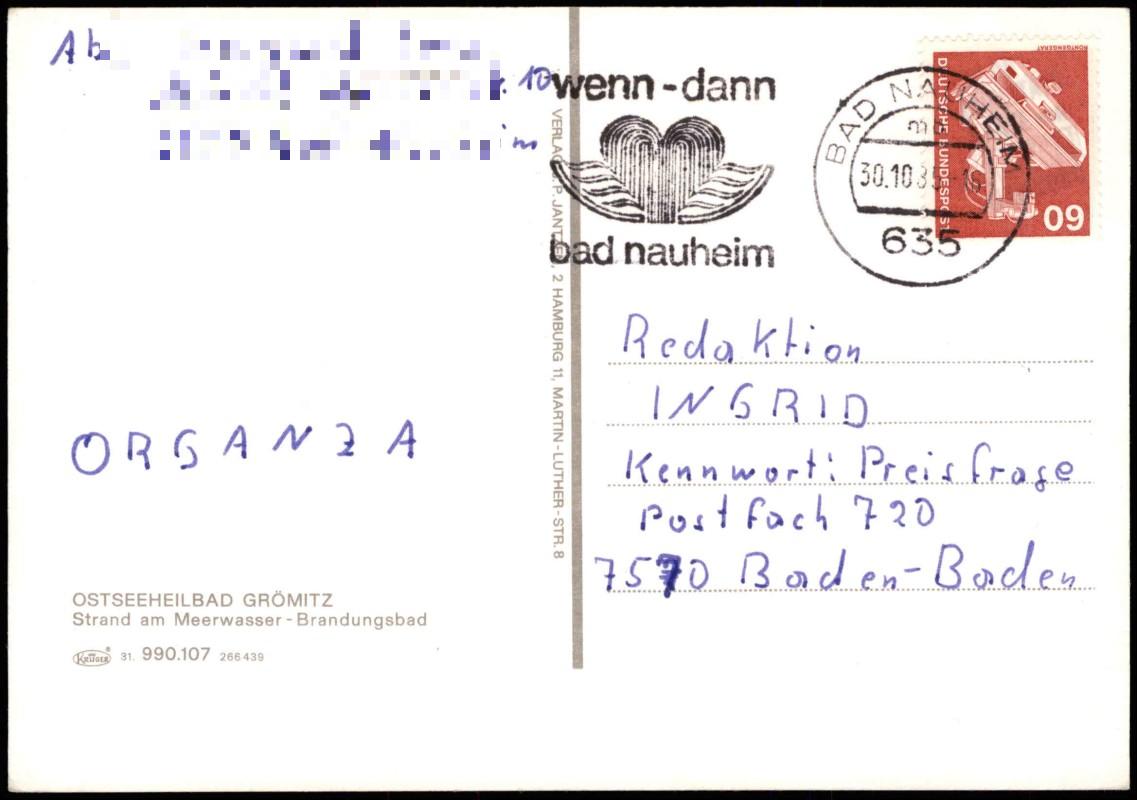 Ab
10
wenn - dann
bad nauheim
BAD NAUHEIM
30.10.85-16
635
DEUTSCHE BUNDESPOST
RÖNTGENGERÄT
60
ORGANZA
Redaktion
INGRID
Kennwort: Preisfrage
Postfach 720
7570 Baden-Baden
2 HAMBURG 11, MARTIN-LUTHER-STR. 8
OSTSEEHEILBAD GRÖMITZ
Strand am Meerwasser-Brandungsbad
KRÜGER 31. 990.107 266439